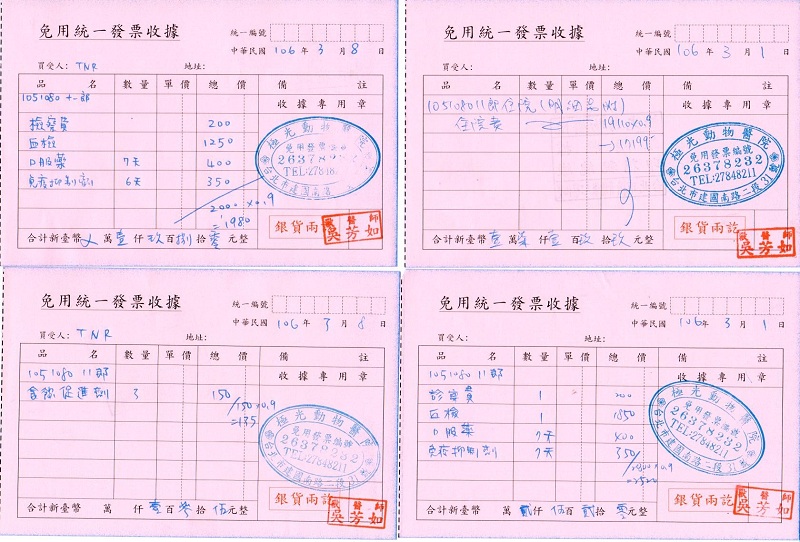 免用統一發票收據
統一編號
中華民國 106 年 3 月 8 日
買受人: TNR 地址:
品名 數量 單價 總價 備註
1051080 十一郎 收據專用章
檢察費 200
血檢 1250
口服藥 7天 400
免疫抑制劑 6天 350
×0.9
=1980
極光動物醫院
免用發票編號
26378232
TEL:27848211
銀貨兩訖
獸醫師
吳芳如
合計新臺幣 萬 壹 仟 玖 百 捌 拾 零 元整
免用統一發票收據
統一編號
中華民國 106 年 3 月 1 日
買受人: 地址:
品名 數量 單價 總價 備註
105108011郎住院 收據專用章
住院費 19110×0.9
→17199
極光動物醫院
免用發票編號
26378232
TEL:27848211
台北市建國南路二段31號
銀貨兩訖
獸醫師
吳芳如
合計新臺幣 壹 萬 柒 仟 壹 百 玖 拾 玖 元整
免用統一發票收據
統一編號
中華民國 106 年 3 月 8 日
買受人: TNR 地址:
品名 數量 單價 總價 備註
1051080 11郎 收據專用章
食慾促進劑 3 150
150×0.9
=135
極光動物醫院
免用發票編號
26378232
TEL:27848211
台北市建國南路二段31號
銀貨兩訖
獸醫師
吳芳如
合計新臺幣 萬 仟 壹 百 參 拾 伍 元整
免用統一發票收據
統一編號
中華民國 106 年 3 月 1 日
買受人: 地址:
品名 數量 單價 總價 備註
1051080 11郎 收據專用章
診察費 1 200
血檢 1 1850
口服藥 7天 400
免疫抑制劑 7天 350
2800×0.9
=2520
極光動物醫院
免用發票編號
26378232
TEL:27848211
台北市建國南路二段31號
銀貨兩訖
獸醫師
吳芳如
合計新臺幣 萬 貳 仟 伍 百 貳 拾 零 元整